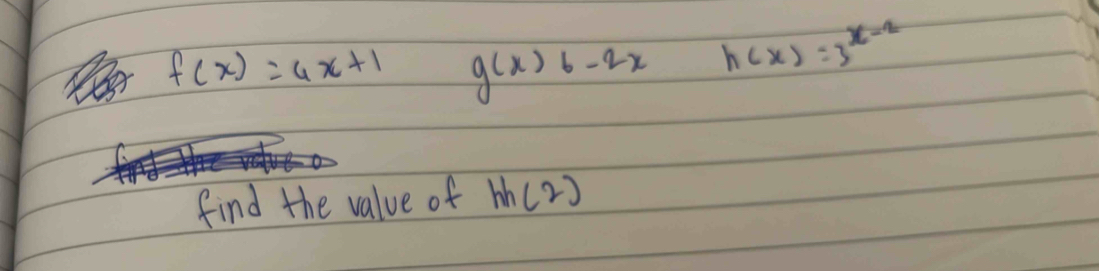 f(x) = 4x+1 g(x) 6-2x h(x) = 3^x-2
find the value o
find the value of hh(2)